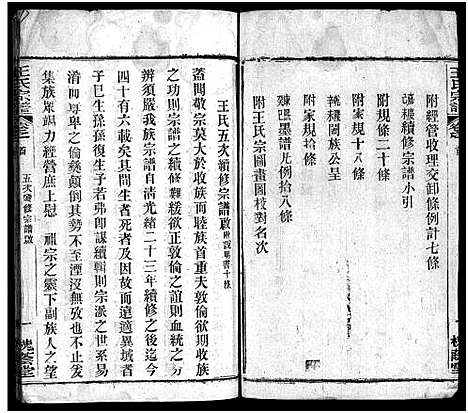 王氏宗譜
附經管收理交卸條例計七條
續修宗譜小引
附規條二十條
闔族公呈
附家規十八條
墨譜凡例拾八條
附家規拾條
附王氏宗圖畫圖校對名次
王氏五次續修宗譜啟
蓋聞敬宗莫大於收族而睦族首重夫敦倫欲期收族
之功則宗譜之續修難緩欲正敦倫之誼則血統之分
辨須嚴我族宗譜自清光緒二十三年續修之後迄今
四十有六載矣其間生者生沒者沒而遠適異域者或
子已生孫孫復生子若弗即謀續輯則宗派之世系易
淆而尊卑之倫彝顛倒其勢不至湮沒而不止爰是
集族眾竭力經營庶上慰 祖宗之靈下副族人之望
王氏宗譜
五次續修宗譜啟
一
槐蔭堂